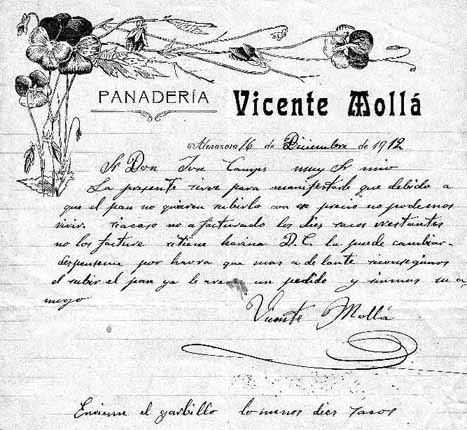 PANADERÍA Vicente Mollá
Almazora 16 de Diciembre de 1912
Sr Don Jose Campos muy Sr mio
La presente sirve para manifestarle que debido a
que el pan no quieren subirlo con ese precio no podemos
vivir si acaso no a facturado los dies sacos restantes
no los facture si tiene harina D. C. la puede cambiar
dispenseme por haora que mas a delante si conseguimos
el subir el pan ya le are un pedido y
mayo
Vicente Mollá
Envieme el garbillo lo menos dies sacos